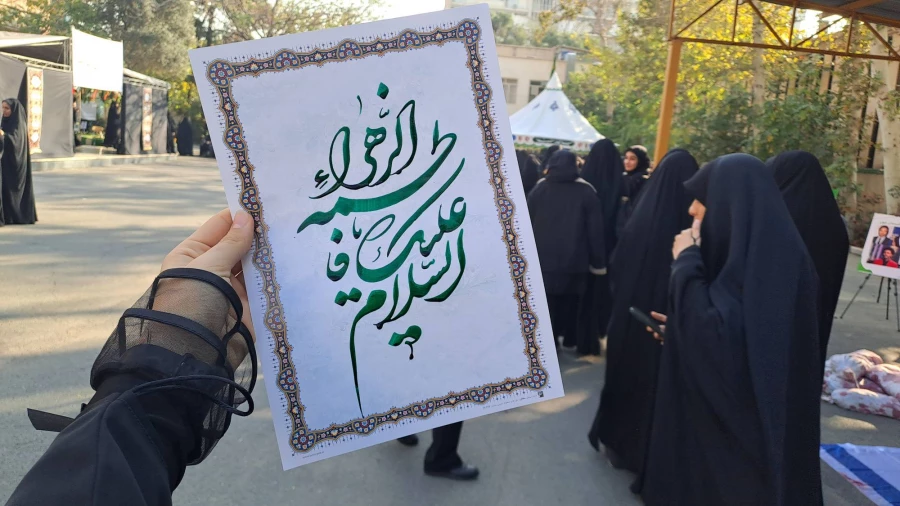 السّلام علیک یا فاطمه الزّهراء